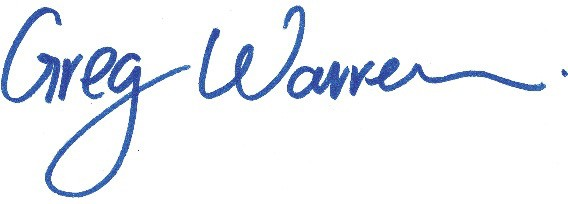 Greg Warren.